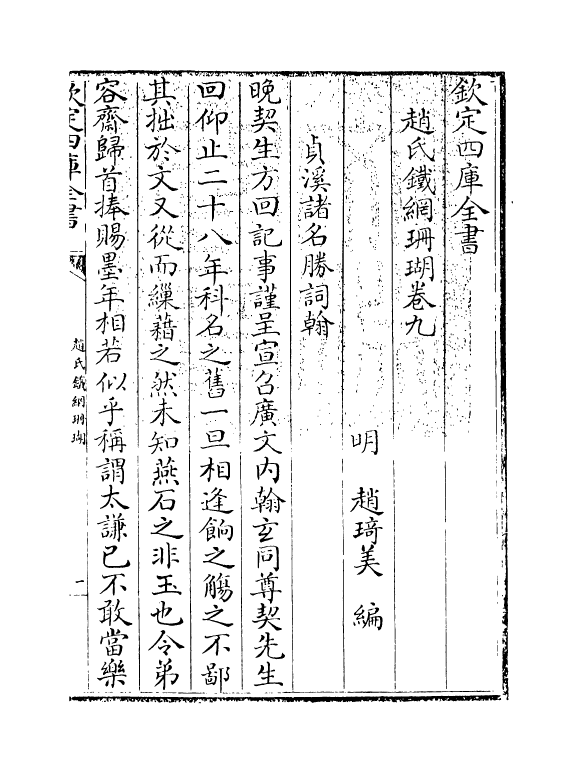 欽定四庫全書
趙氏鐵網珊瑚卷九
明　趙琦美　編
貞溪諸名勝詞翰
晚契生方回記事謹呈宣召廣文内翰玄同尊契先生
回仰止二十八年科名之舊一旦相逢餉之觴之不鄙
其拙於文又從而繅藉之然未知燕石之非玉也令弟
容齋歸首捧賜墨年相若似乎稱謂太謙已不敢當樂
欽定四庫全書
趙氏鐵網珊瑚
一